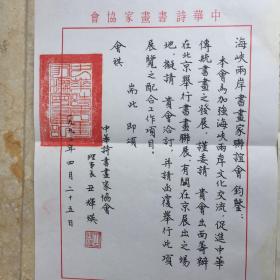 中華詩書畫家協會
海峽兩岸書畫家聯誼會 鈞鑒：
本會為加強海峽兩岸文化交流，促進中華
傳統書畫之發展，謹委請 貴會出面籌辦
在北京舉行書畫聯展，有關在京展出之場
地，擬請 貴會洽訂，并請出復舉行此項
展覽之配合工作項目。
耑此 即頌
會祺
中華詩書畫家協會
理事長 丑輝煐
年四月二十五日